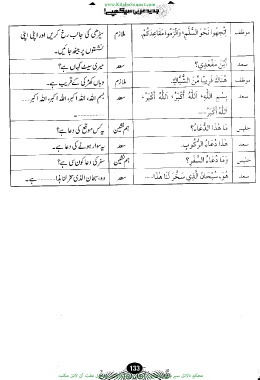 www.KitaboSunnat.com
جدید عربی سیکھیے
موظف اتجهوا نحو السلّم، والزموا مقاعدكم. ملازم سیڑھی کی جانب رخ کریں اور اپنی اپنی
نشستوں پر بیٹھ جائیں۔
سعد أين مقعدي؟ سعد میری سیٹ کہاں ہے؟
موظف هناك قريبًا من الشباك. ملازم وہاں کھڑکی کے قریب ہے۔
سعد بسم الله، الله أكبر، الله أكبر، سعد بسم اللہ، اللہ اکبر، اللہ اکبر، اللہ اکبر ...
الله أكبر.....
جليس ما هذا الدعاء؟ ہم نشین یہ کس موقع کی دعا ہے؟
سعد هذا دعاء الركوب. سعد یہ سوار ہونے کی دعا ہے۔
جليس وما دعاء السفر؟ ہم نشین سفر کی دعا کون سی ہے؟
سعد هو، سبحان الذي سخر لنا هذا.... سعد وہ، سبحان الذی سخر لنا ہذا ..... ہے۔
133